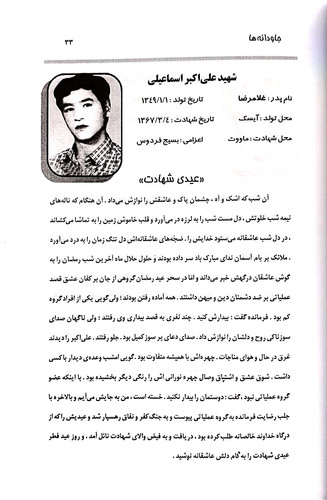 جاودانه‌ها
۳۳
شهید علی‌اکبر اسماعیلی
نام پدر: غلامرضا
تاریخ تولد : ۱۳۴۹/۱/۱
محل تولد: آیسک
تاریخ شهادت : ۱۳۶۷/۳/۴
محل شهادت: ماووت
اعزامی: بسیج فردوس
«عیدی شهادت»
آن شب که اشک و آه ، چشمان پاک و عاشقش را نوازش می‌داد . آن هنگام که ناله‌های
نیمه شب خلوتش ، دل مست شب را به لرزه در می‌آورد و قلب خاموش زمین را به تماشا می‌کشاند
، در دل شب عاشقانه می‌ستود خدایش را . ضجه‌های عاشقانه‌اش دل تنگ زمان را به درد می‌آورد
. ملائک بر بام آسمان ندای مبارک باد سر داده بودند و حلول حلال ماه آخرین شب رمضان را به
گوش عاشقان درگهش خبر می‌داند و اما در سحر عید رمضان گروهی از جان بر کفان عشق قصد
عملیاتی بر ضد دشمنان دین و میهن داشتند . همه آماده رفتن بودند ؛ ولی گویی یکی از افراد گروه
کم بود . فرمانده گفت : بیدارش کنید . چند نفری به قصد بیداری وی رفتند ؛ ولی ناگهان صدای
سوزناکی روح و دلشان را نوازش داد . صدای دعای پر سوز کمیل بود . جلو رفتند . علی‌اکبر را دیدند
غرق در حال و هوای مناجات . چهره‌اش با همیشه متفاوت بود . گویی امشب وعده‌ی دیدار با کسی
داشت . شوق عشق و اشتیاق وصال چهره نورانی اش را رنگی دیگر بخشیده بود . با اینکه عضو
گروه عملیاتی نبود ، گفت : دوستمان را بیدار نکنید . خسته است ، من به جایش می‌آیم و بالاخره با
جلب رضایت فرمانده به گروه عملیاتی پیوست و به جنگ کفر و نفاق رهسپار شد و عیدیش را که از
درگاه خداوند خالصانه طلب کرده بود ، دریافت و به فیض والای شهادت نائل آمد . و روز عید فطر
عیدی شهادت را به گام دلش عاشقانه نوشید .